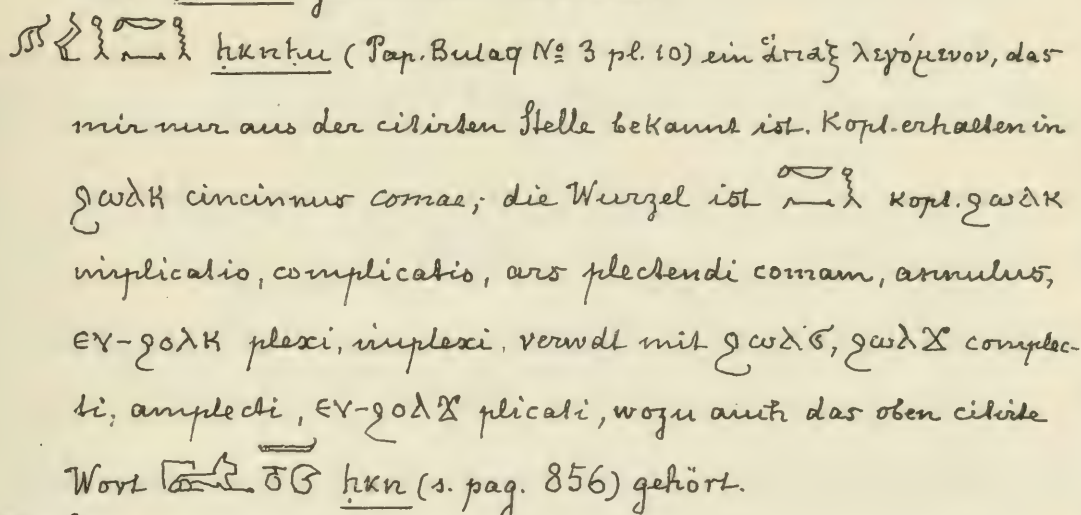 ḥknḥu (Pap. Bulaq Nº 3 pl. 10) ein ἅπαξ λεγόμενον, das
mir nur aus der citirten Stelle bekannt ist. Kopt. erhalten in
ϩωλκ cincinnus comae; die Wurzel ist kopt. ϩωλκ
implicatio, complicatio, ars plectendi comam, annulus,
ⲉⲩ-ϩⲟⲗⲕ plexi, implexi, verwdt mit ϩⲱⲗϭ, ϩⲱⲗϫ complec-
ti, amplecti, ⲉⲩ-ϩⲟⲗϫ plicati, wozu auch das oben citirte
Wort ḥkn (s. pag. 856) gehört.